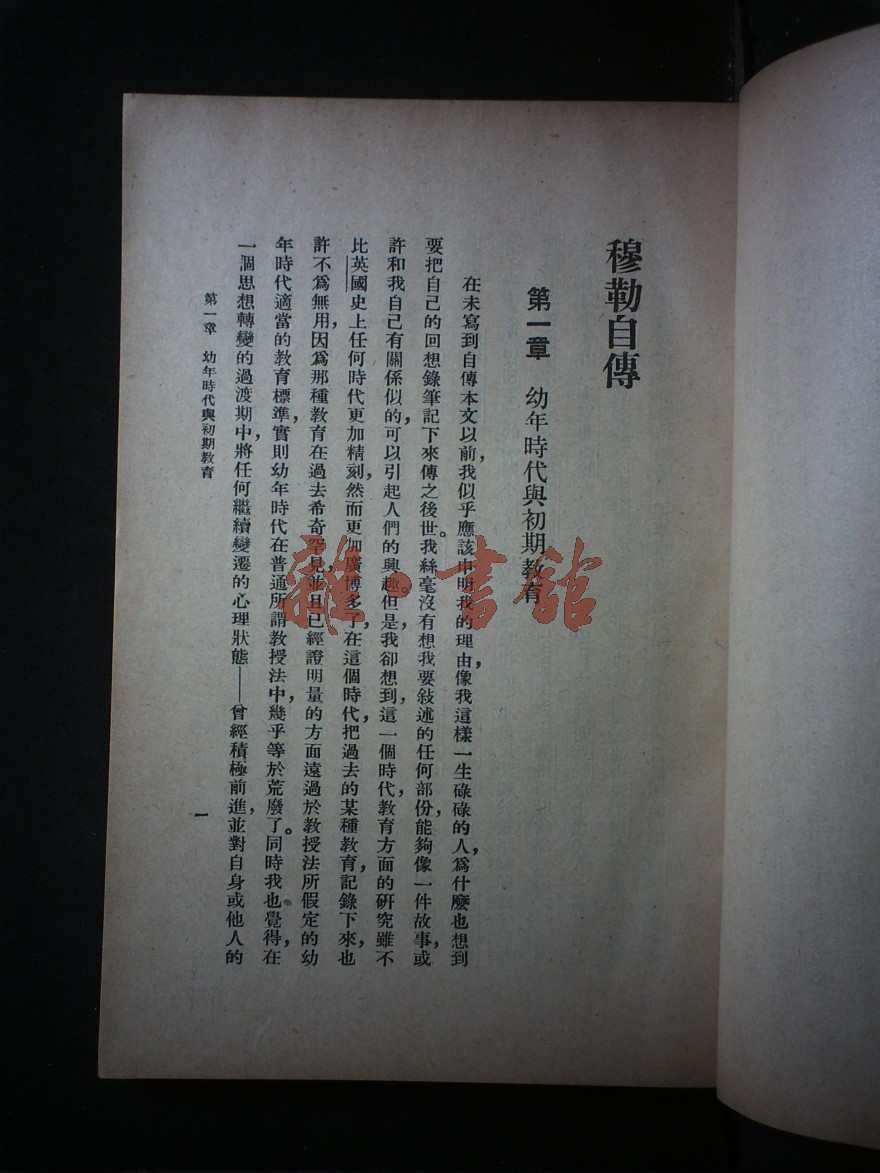 穆勒自傳
第一章 幼年時代與初期教育
在未寫到自傳本文以前，我似乎應該申明我的理由，像我這樣一生碌碌的人，爲什麼也想到
要把自己的回想錄筆記下來傳之後世。我絲毫沒有想我要敍述的任何部份，能夠像一件故事，或
許和我自己有關係似的，可以引起人們的興趣。但是，我卻想到，這一個時代，教育方面的研究雖不
比英國史上任何時代更加精刻，然而更加廣博多了，在這個時代，把過去的某種教育記錄下來，也
許不爲無用，因爲那種教育在過去希奇罕見，並且已經證明量的方面遠過於教授法所假定的幼
年時代適當的教育標準，實則幼年時代在普通所謂教授法中，幾乎等於荒廢了。同時我也覺得，在
一個思想轉變的過渡期中，將任何繼續變遷的心理狀態——曾經積極前進，並對自身或他人的
第一章 幼年時代與初期教育
一
雜·書館